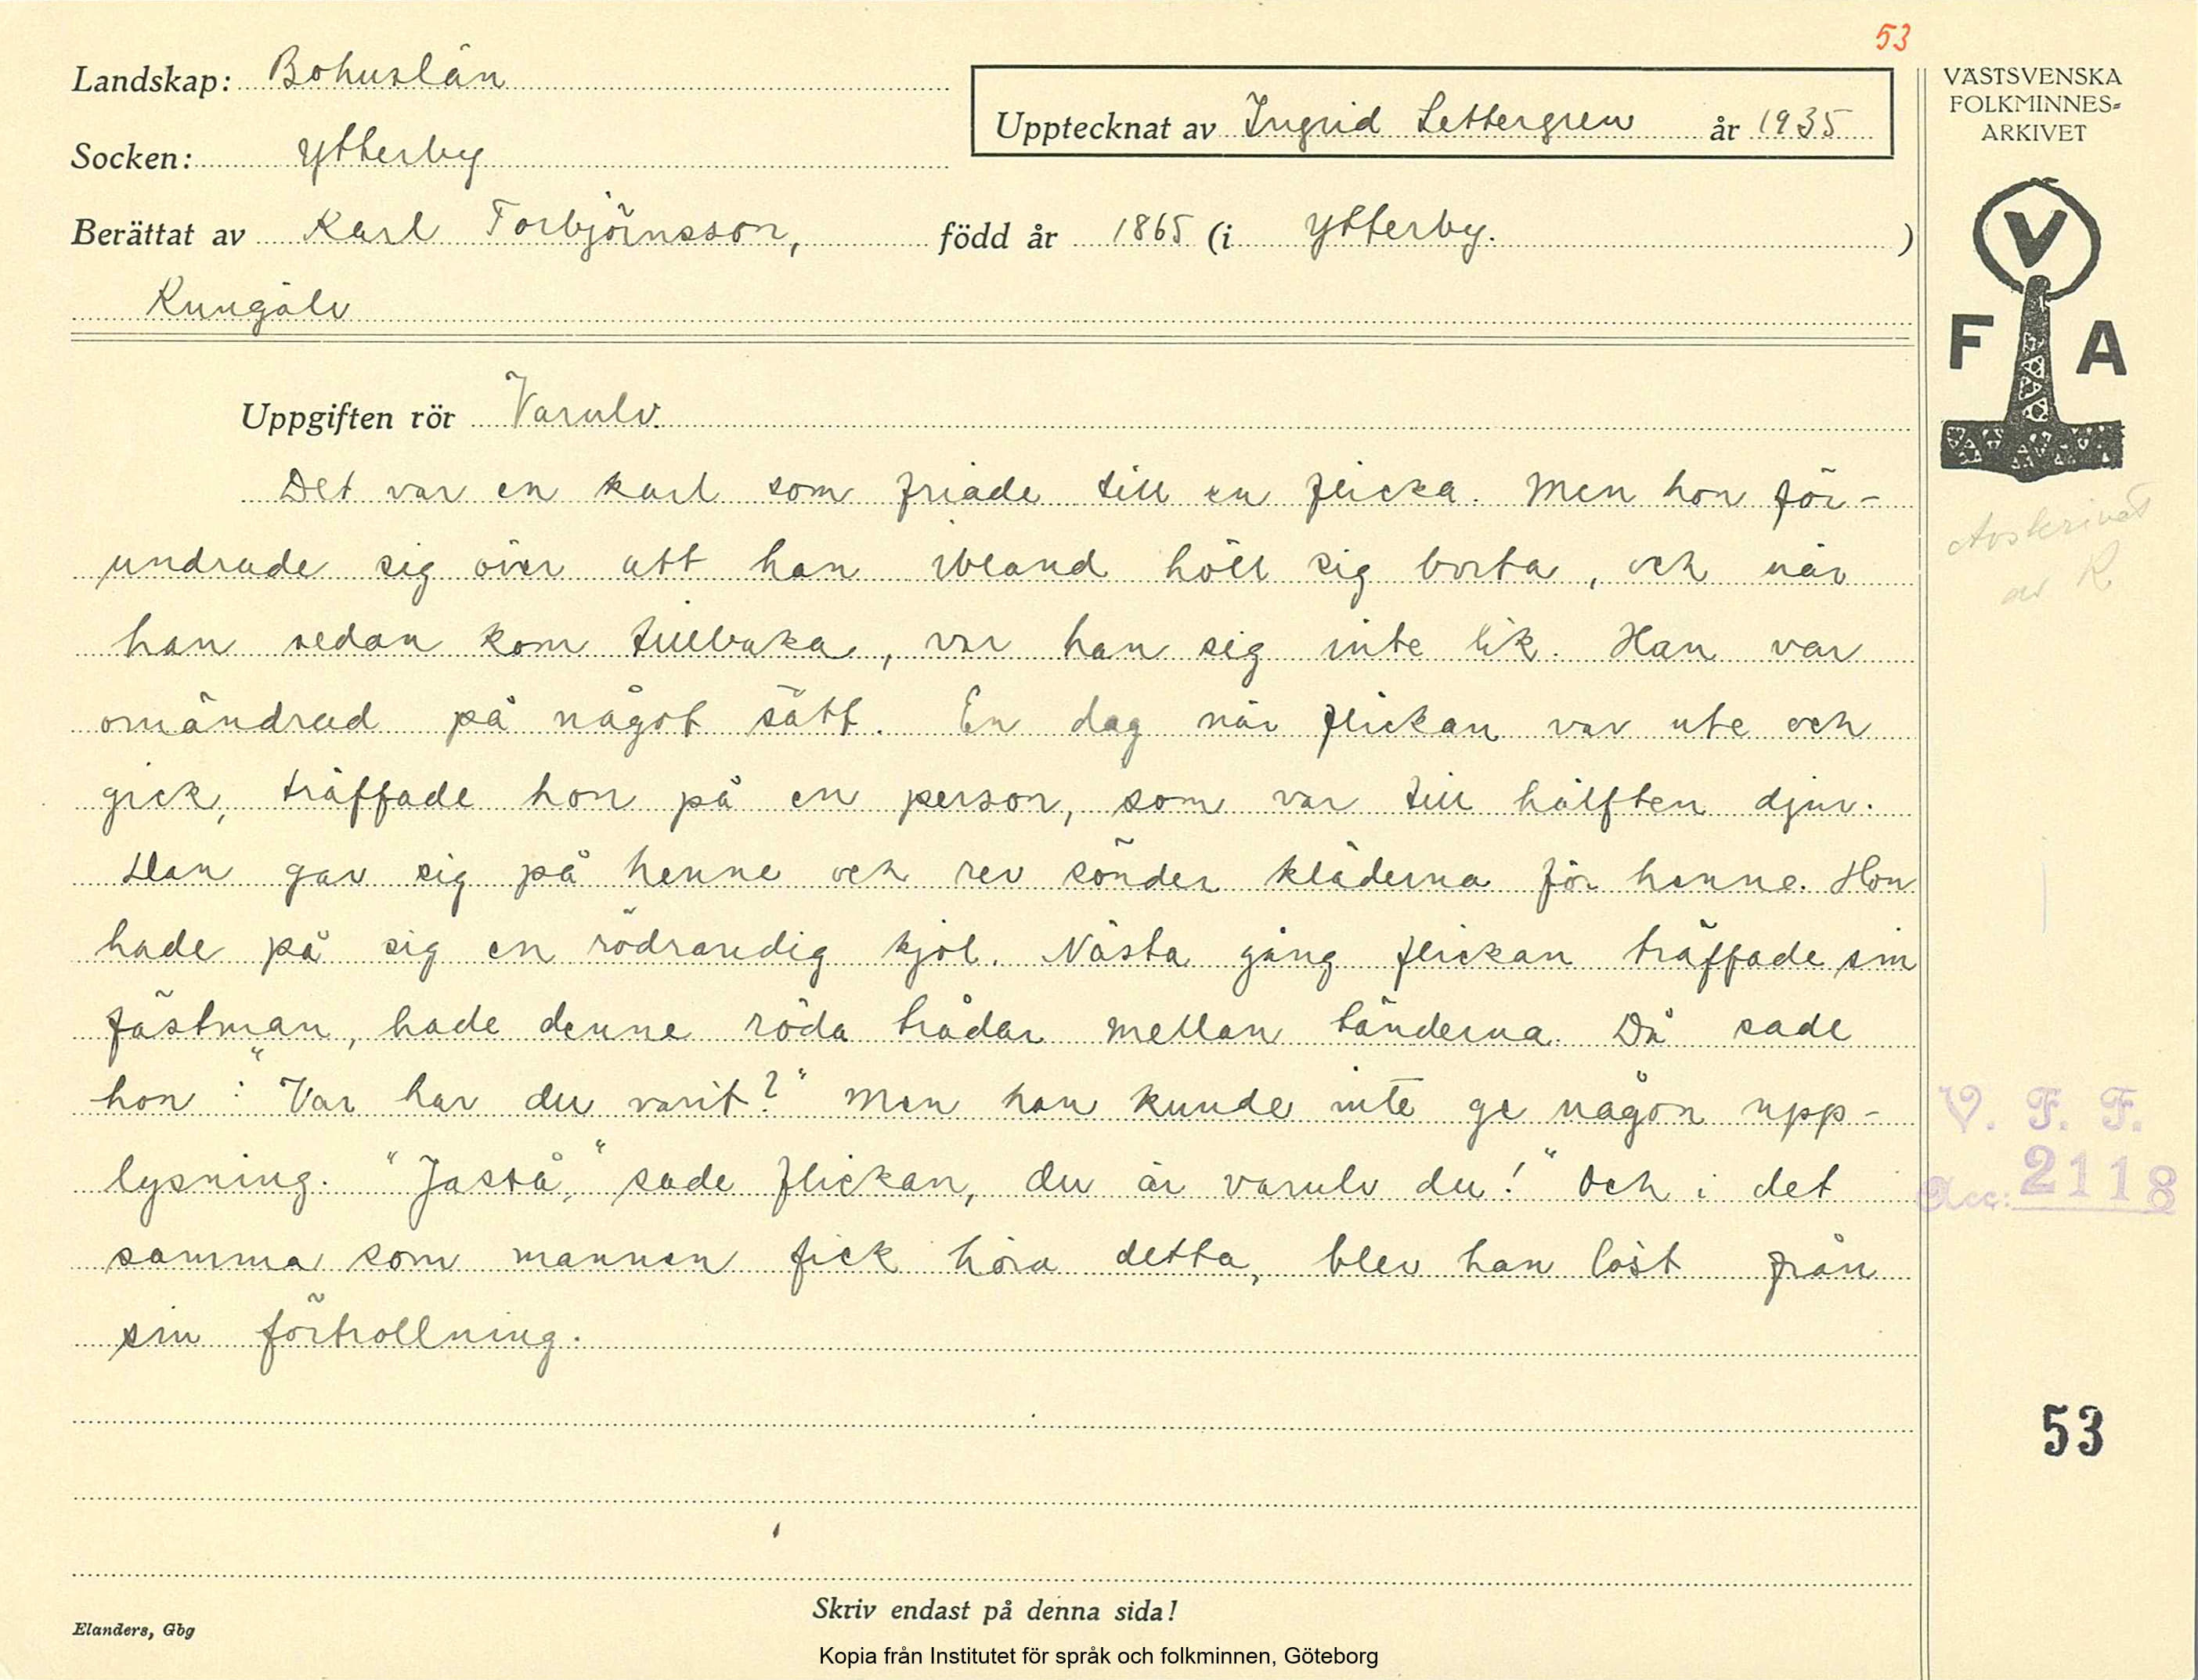 53
Landskap: Bohuslän
Upptecknat av Ingrid Settergren år 1935
Socken: Ytterby
Berättat av Karl Torbjörnsson, född år 1865 (i Ytterby. )
Kungälv
VÄSTSVENSKA
FOLKMINNES-
ARKIVET
V
F A
Uppgiften rör Varulv.
Det var en karl som friade till en flicka. Men hon för-
undrade sig över att han ibland höll sig borta, och när
han sedan kom tillbaka, var han sig inte lik. Han var
omändrad på något sätt. En dag när flickan var ute och
gick, träffade hon på en person, som var till hälften djur.
Han gav sig på henne och rev sönder kläderna för henne. Hon
hade på sig en rödrandig kjol. Nästa gång flickan träffade sin
fästman, hade denne röda trådar mellan tänderna. Då sade
hon: "Var har du varit?" Men han kunde inte ge någon upp-
lysning. "Jasså," sade flickan, du är varulv du!" Och i det
samma som mannen fick höra detta, blev han löst från
sin förtrollning.
Avskrivet
av R
V. F. F.
Acc: 2118
53
Skriv endast på denna sida!
Elanders, Gbg
Kopia från Institutet för språk och folkminnen, Göteborg